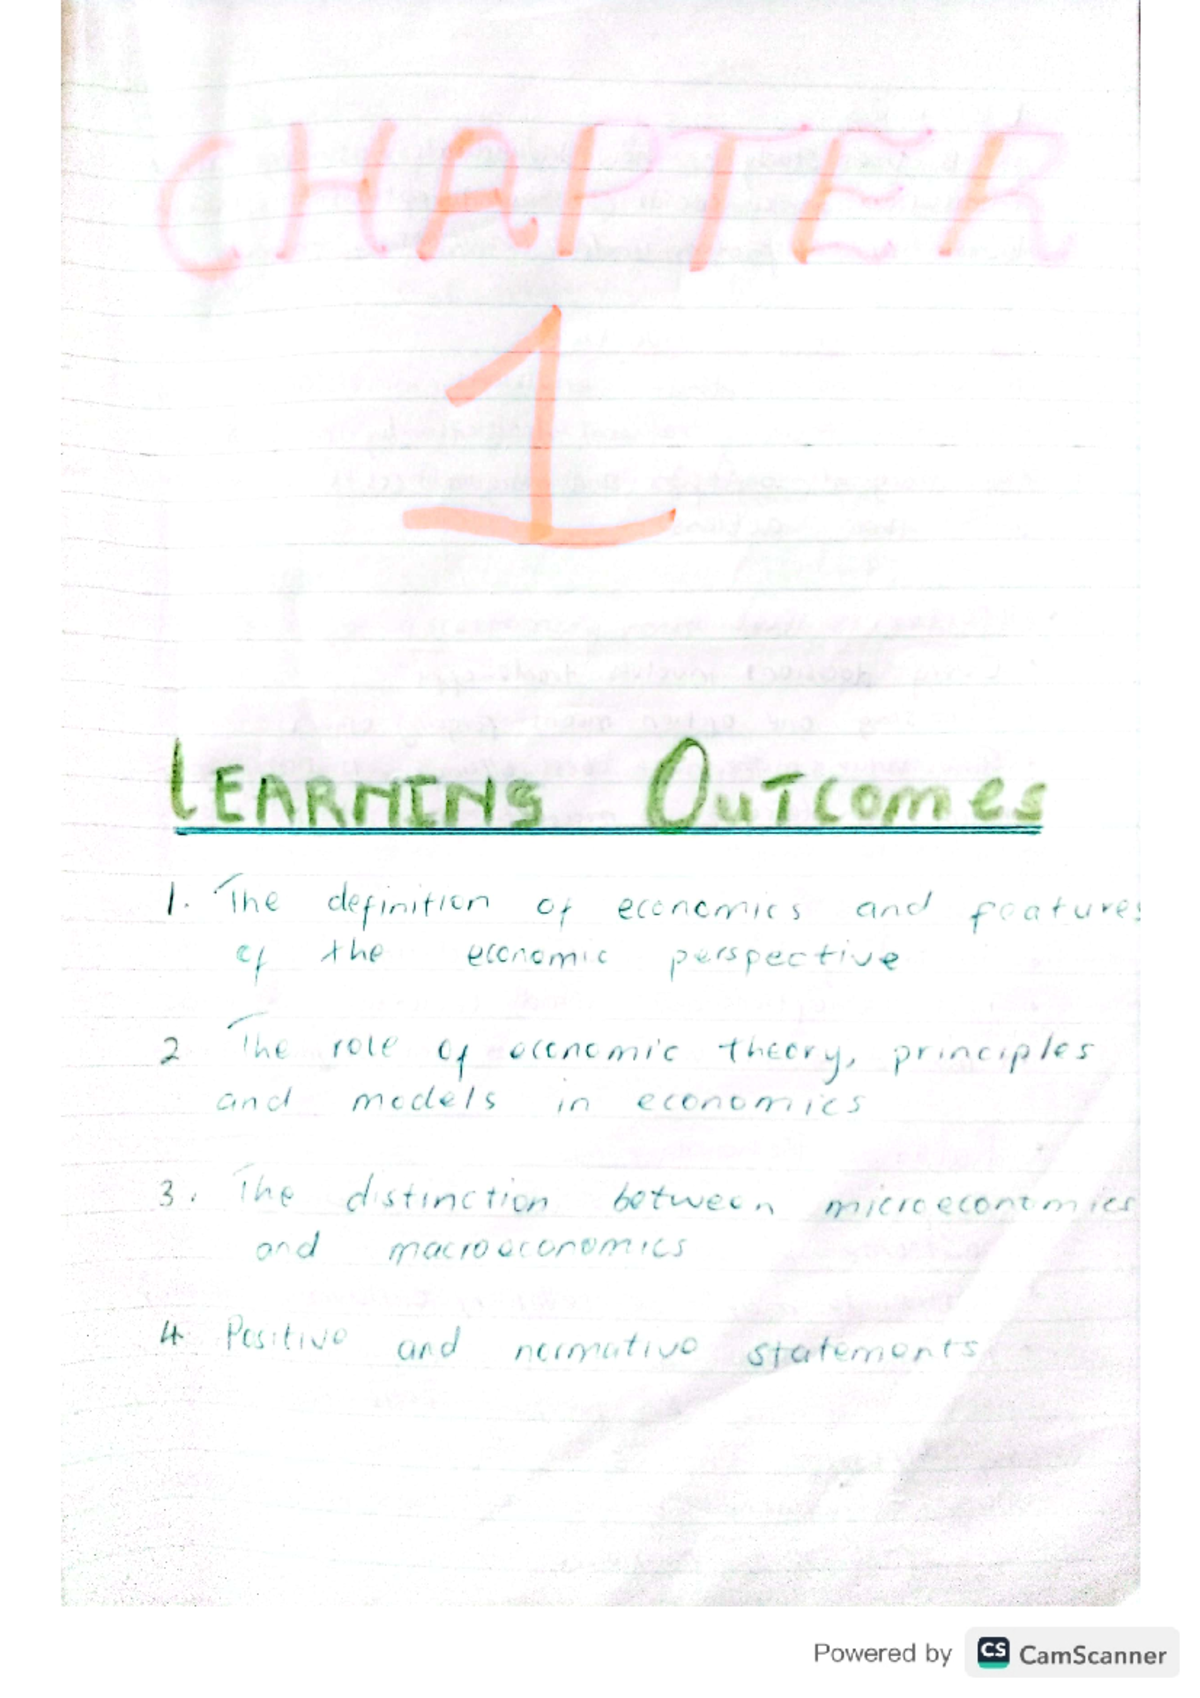 CHAPTER
1
LEARNING OUTCOMES
1. The definition of economics and features
of the economic perspective
2 The role of economic theory, principles
and models in economics
3. The distinction between microeconomics
and macroeconomics
4 Positive and normative statements
Powered by CS CamScanner